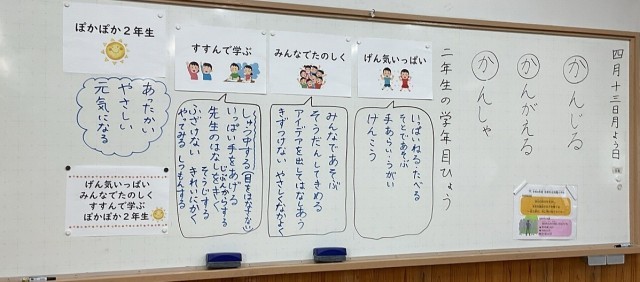 四月十三日月よう日
かんじる
かんがえる
かんしゃ
二年生の学年目ひょう
げん気いっぱい
いっぱいねる・たべる
そとであそぶ
手あらい・うがい
けんこう
みんなでたのしく
みんなであそぶ
そうだんしてきめる
アイデアを出してはなしあう
きずつけない やさしくなかよく
すすんで学ぶ
しゅう中する
いっぱい手をあげる
先生のはなしをきく
ふざけない きれいにかく
やってみる しつもんする
そうじする
ぽかぽか2年生
あったかい
やさしい
元気になる
げん気いっぱい
みんなでたのしく
すすんで学ぶ
ぽかぽか2年生